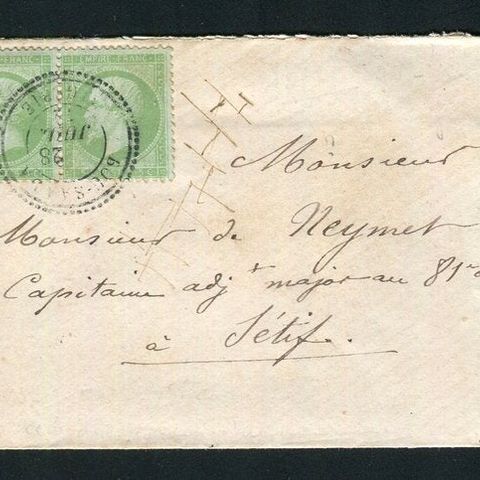 EMPIRE FRANC
JUIL
28
Monsieur
Monsieur de Neymet
Capitaine adjt major au 81e
à Sétif.